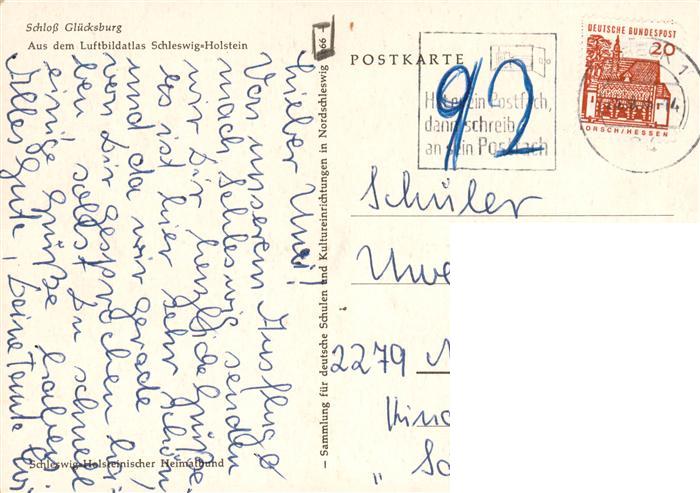 Schloß Glücksburg
Aus dem Luftbildatlas Schleswig-Holstein
Lieber Uwe!
Von unserem Ausflug
nach Schleswig senden
wir Dir herzliche Grüße
es ist hier sehr schön
und da wir gerade
von Dir gesprochen ha-
ben sollst Du schnell
einige Grüße haben
Alles Gute, Deine Tante
Schleswig-Holsteinischer Heimatbund
– Sammlung für deutsche Schulen und Kultureinrichtungen in Nordschleswig 1966 –
POSTKARTE
92
Hast ein Postfach,
dann schreib
an sein Postfach
DEUTSCHE BUNDESPOST
20
LORSCH/HESSEN
Schüler
Uwe
2279